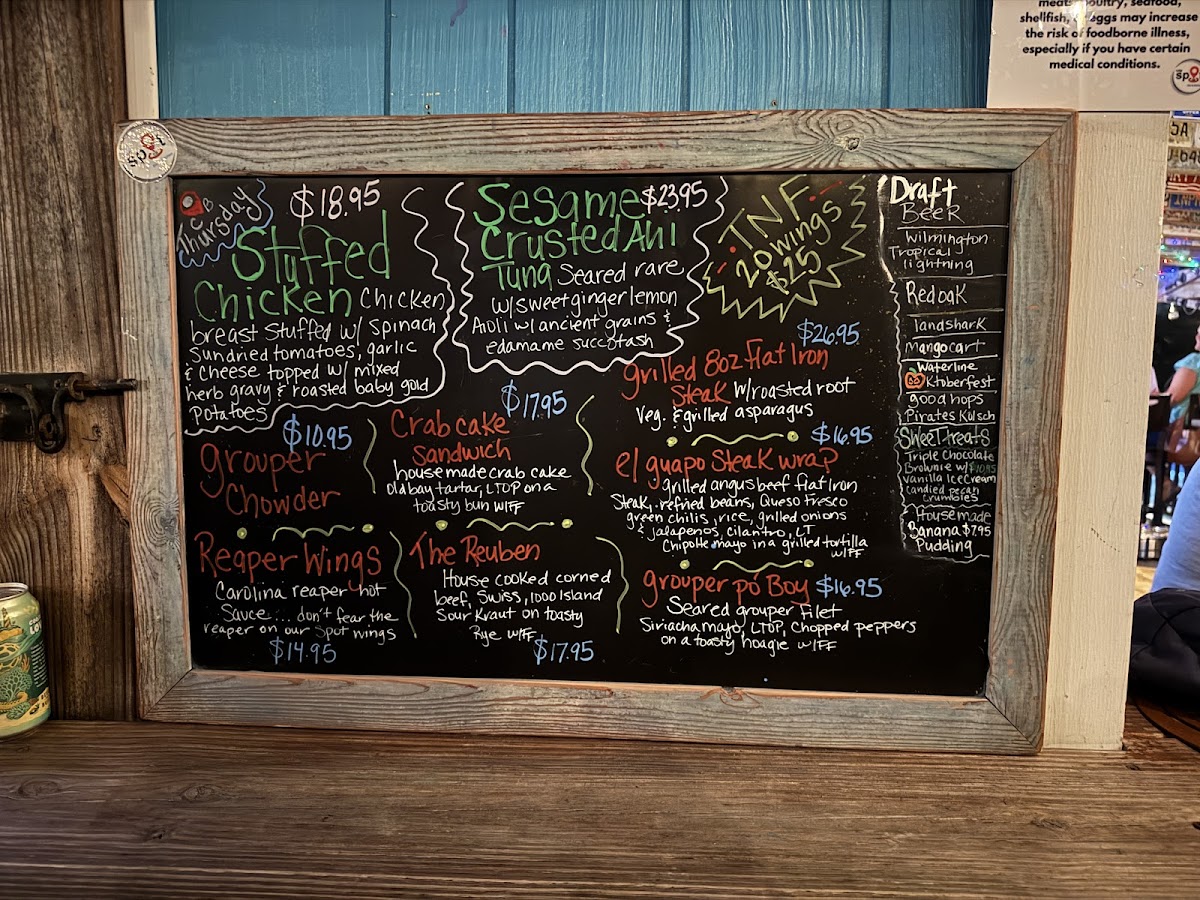 meats, poultry, seafood,
shellfish, eggs may increase
the risk of foodborne illness,
especially if you have certain
medical conditions.
spot
spot
CB
Thursday
$18.95
Stuffed
Chicken Chicken
breast stuffed w/ spinach
sundried tomatoes, garlic
& cheese topped w/ mixed
herb gravy & roasted baby gold
potatoes
Sesame $23.95
Crusted Ahi
Tuna Seared rare
w/ sweet ginger lemon
Aioli w/ ancient grains &
edamame succotash
TNF
20 wings
$25
$10.95
Grouper
Chowder
$17.95
Crab cake
Sandwich
house made crab cake
Old bay tartar, LTOP on a
toasty bun w/FF
$26.95
grilled 8oz Flat Iron
Steak w/ roasted root
Veg. & grilled asparagus
$16.95
el guapo Steak wrap
grilled angus beef flat Iron
Steak, refried beans, Queso Fresco
green chilis, rice, grilled onions
& jalapenos, cilantro, LT
Chipotle mayo in a grilled tortilla
w/FF
Reaper Wings
Carolina reaper hot
Sauce... don't fear the
reaper on our Spot wings
$14.95
The Reuben
House cooked corned
beef, Swiss, 1000 Island
Sour Kraut on toasty
Rye w/FF
$17.95
grouper po' Boy $16.95
Seared grouper filet
Siriacha mayo, LTOP, Chopped peppers
on a toasty hoagie w/FF
Draft
Beer
Wilmington
Tropical
lightning
Red oak
landshark
mango cart
Waterline
Oktoberfest
good hops
Pirates Kolsch
Sweet Treats
Triple Chocolate
Brownie w/ $10.95
Vanilla Ice Cream
candied pecan
crumbles
House made
Banana $7.95
Pudding